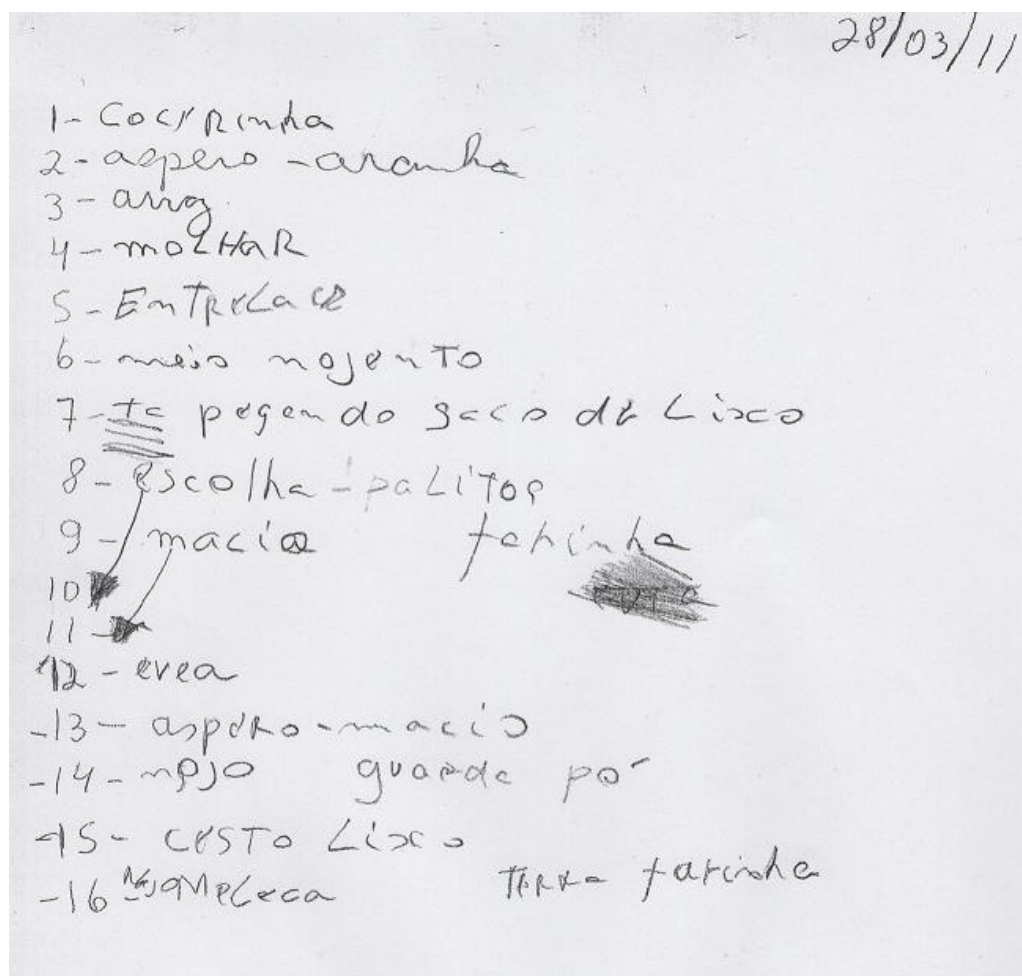 28/03/11
1- COCYRinha
2- aspero - aranha
3-
4- MOLHAR
5- EnTReLace
6- meio nojenTO
7- Ta pegando saco de Lixo
8- escolha - paLiTos
9- macia farinha
10
11 -
12 - evea
-13- aspeRo - macio
-14- nojo guarda pó
-15- CeSTO Lixo
-16 Meleca TeRRa farinha